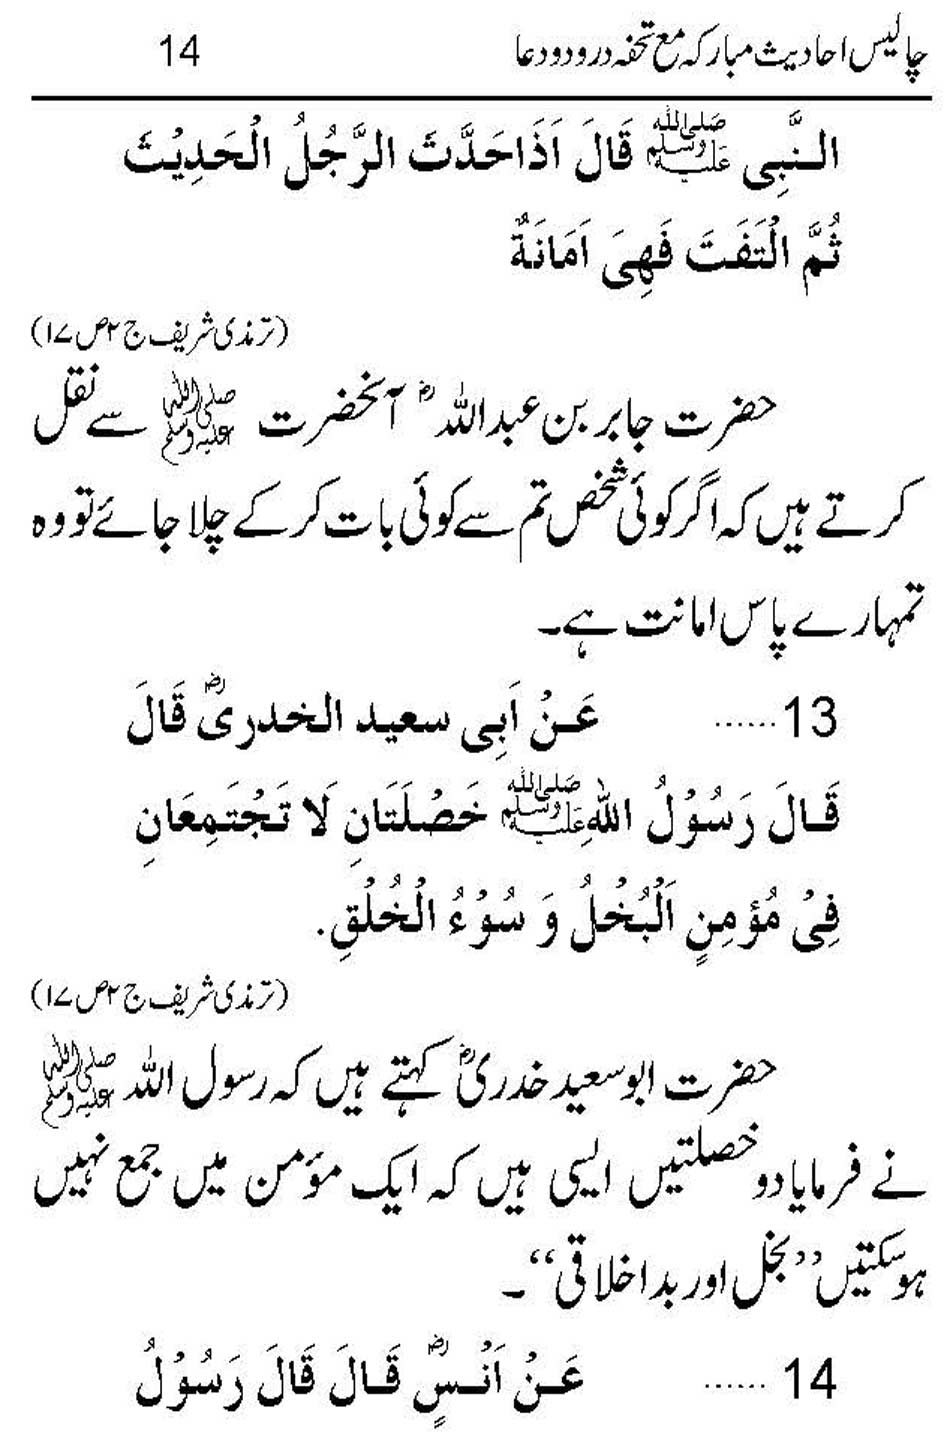 چالیس احادیث مبارکہ مع تحفہ درود و دعا 14
النَّبِی ﷺ قَالَ اَذَاحَدَّثَ الرَّجُلُ الْحَدِیْثَ
ثُمَّ الْتَفَتَ فَهِیَ اَمَانَةٌ
(ترمذی شریف ج ۲ ص ۱۷)
حضرت جابر بن عبداللہ ؓ آنحضرت ﷺ سے نقل
کرتے ہیں کہ اگر کوئی شخص تم سے کوئی بات کر کے چلا جائے تو وہ
تمہارے پاس امانت ہے۔
13 ...... عَـنْ اَبِی سعید الخدریؓ قَالَ
قَـالَ رَسُوْلُ اللّٰهِ ﷺ خَصْلَتَانِ لَا تَجْتَمِعَانِ
فِیْ مُؤمِنٍ اَلْبُخْلُ وَ سُوْءُ الْخُلُقِ.
(ترمذی شریف ج ۲ ص ۱۷)
حضرت ابوسعید خدریؓ کہتے ہیں کہ رسول اللہ ﷺ
نے فرمایا دو خصلتیں ایسی ہیں کہ ایک مؤمن میں جمع نہیں
ہوسکتیں ’’بخل اور بداخلاقی‘‘۔
14 ...... عَـنْ اَنَـسٍؓ قَـالَ قَالَ رَسُوْلُ